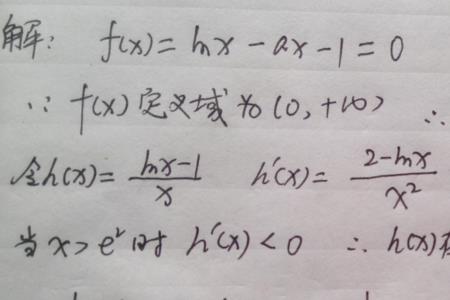 解: f(x)=lnx-ax-1=0
∵ f(x)定义域为(0,+∞) ∴
令h(x)=\frac{lnx-1}{x} h'(x)=\frac{2-lnx}{x^2}
当x>e^2时 h'(x)<0 ∴ h(x)在